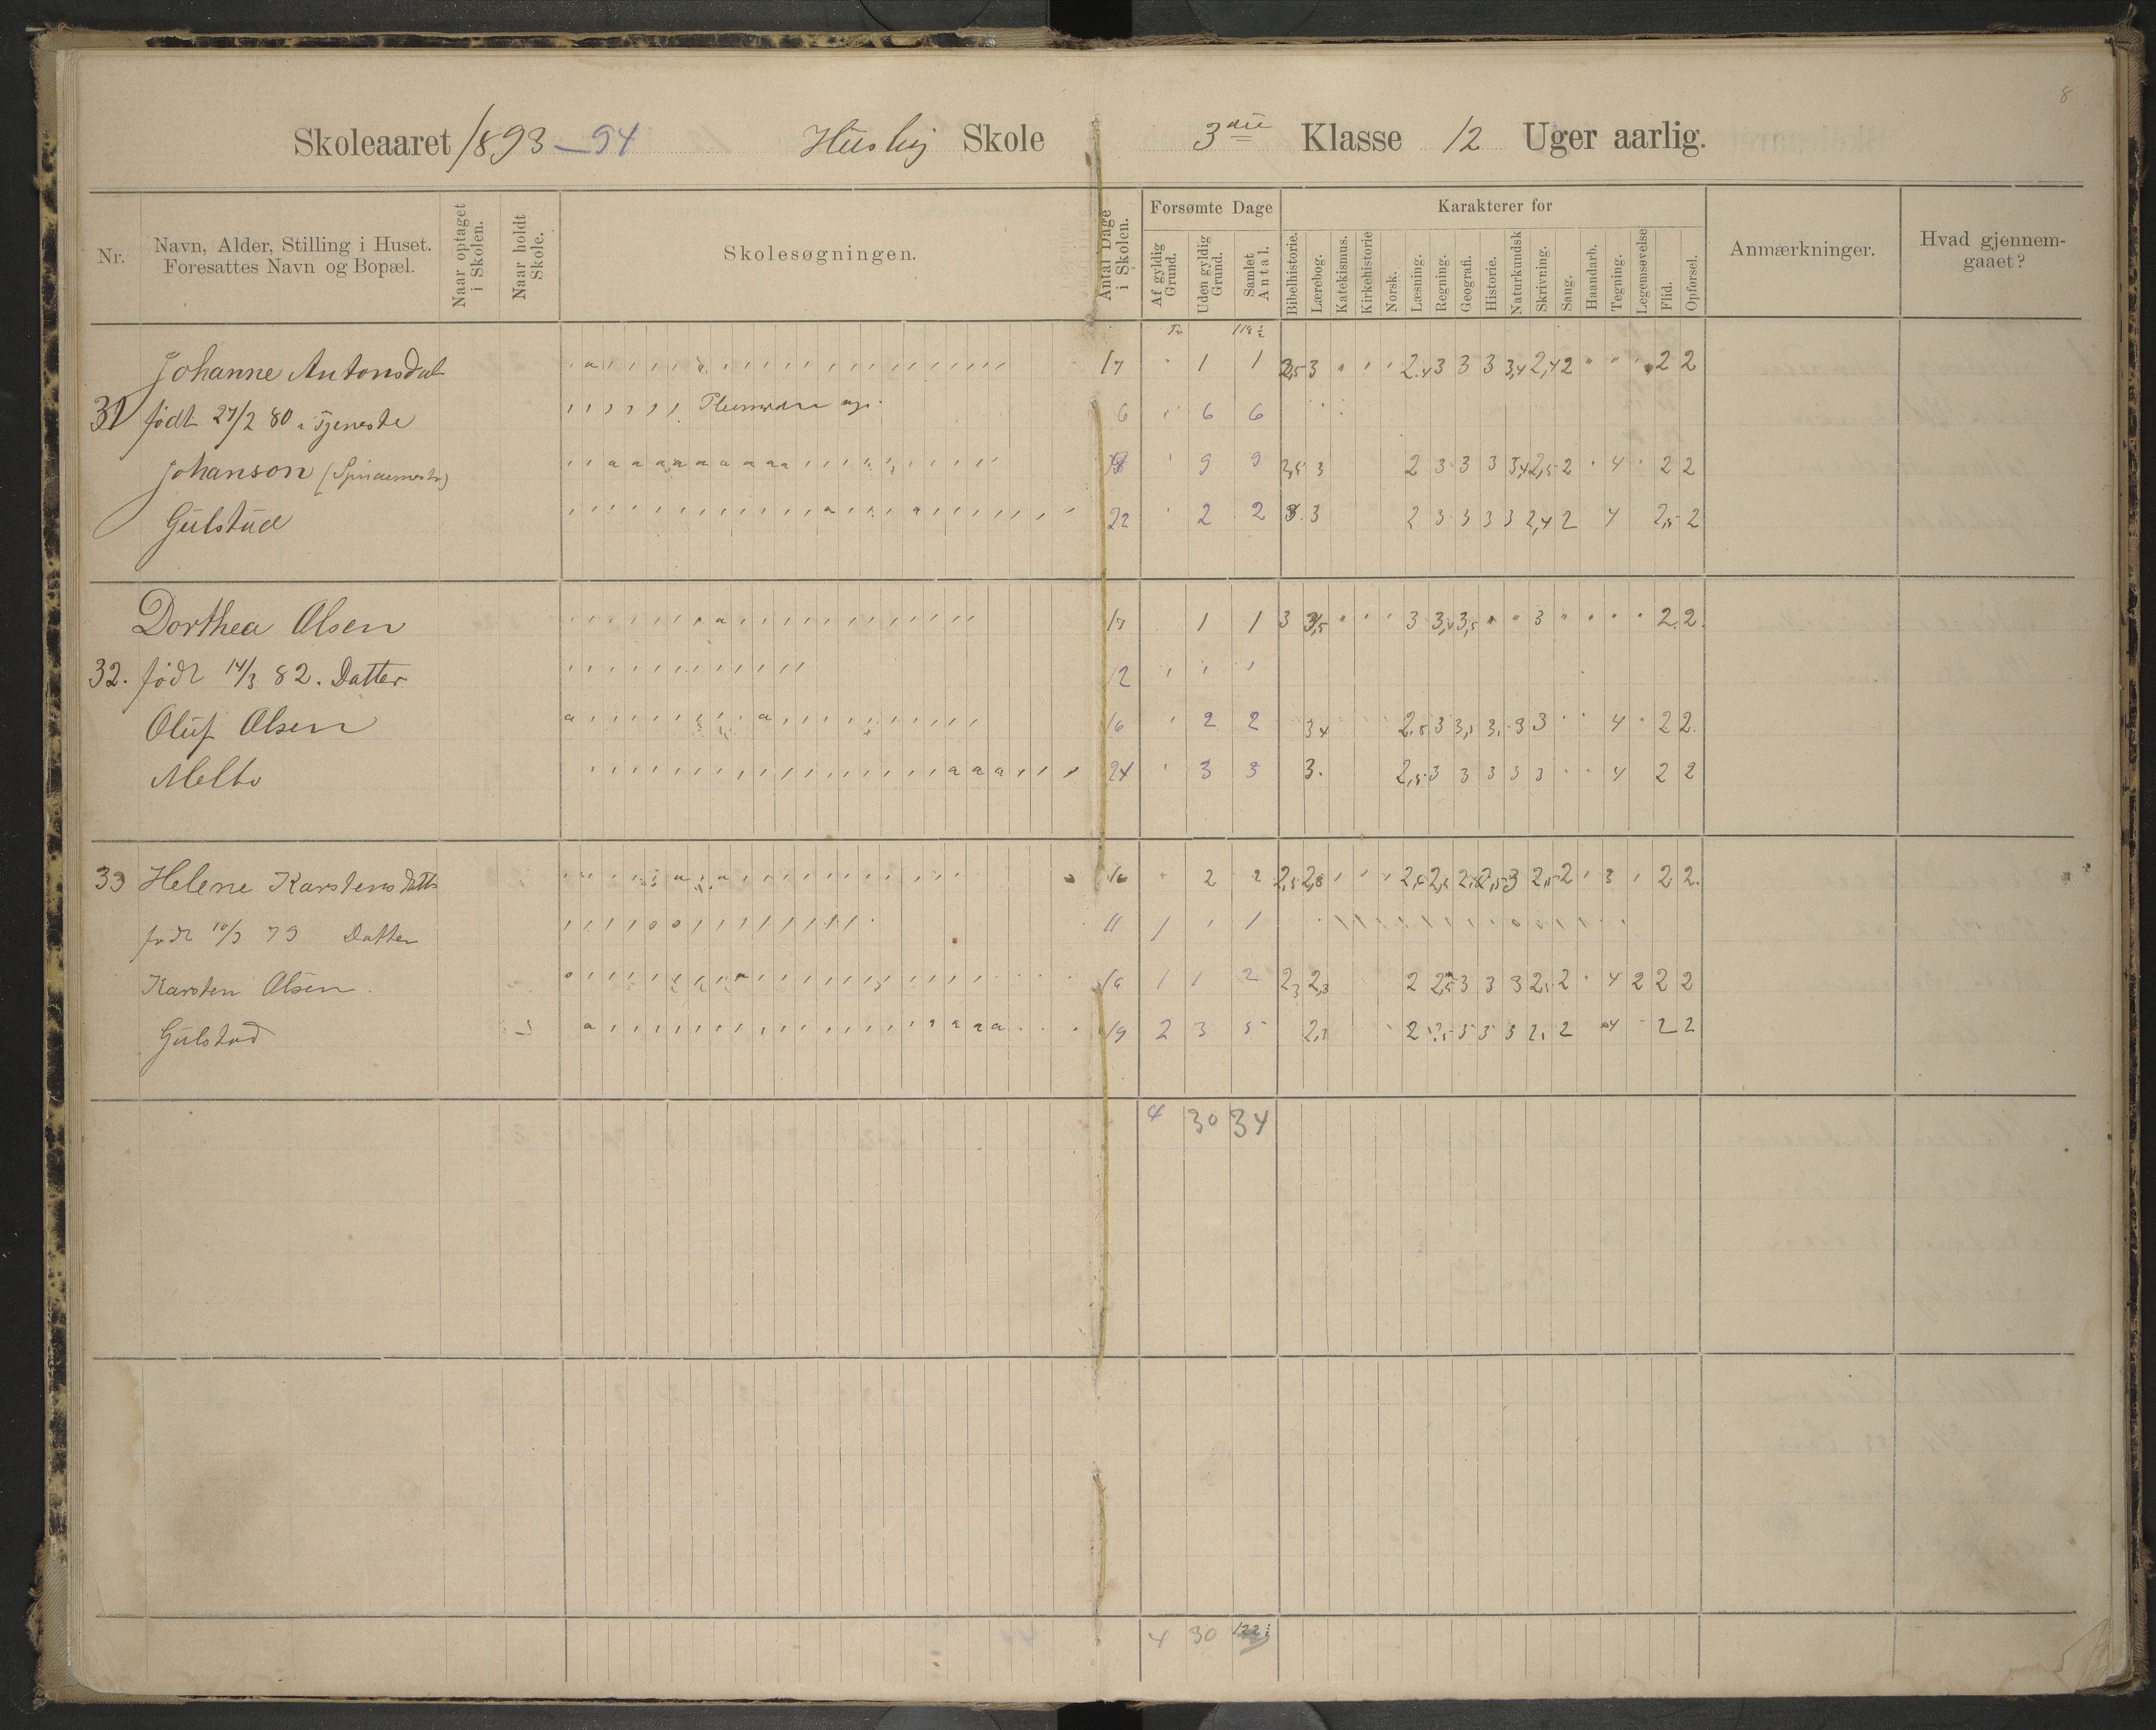 8
Skoleaaret 1893-94 Husby Skole 3die Klasse 12 Uger aarlig.
Nr. Navn, Alder, Stilling i Huset. Foresattes Navn og Bopæl. Naar optaget i Skolen. Naar holdt Skole. Skolesøgningen. Antal Dage i Skolen. Forsømte Dage Karakterer for Anmærkninger. Hvad gjennemgaaet?
Af gyldig Grund. Uden gyldig Grund. Samlet Antal. Bibelhistorie. Lærebog. Katekismus. Kirkehistorie Norsk. Læsning. Regning. Geografi. Historie. Naturkundsk Skrivning. Sang. Haandarb. Tegning. Legemsøvelse Flid. Opførsel.
Johanne Antonsdat 17 " 1 1 2,5 3 " ' ' 2.4 3 3 3 3,4 2,4 2 " " ' 2 2
31 født 27/2 80 i Tjeneste 6 " 6 6
Johanson 18 ' 9 9 2,5 3 2 3 3 3 3,4 2,5 2 ' 4 ' 2 2
Gulstad 22 ' 2 2 3. 3 2 3 3 3 3 2,4 2 4 2,5 2
Dorthea Olsen 17 1 1 3 3,5 " ' ' 3 3,4 3,5 " " 3 " " " " 2. 2.
32. født 14/3 82. Datter 12 ' ' '
Oluf Olsen 16 ' 2 2 3 4 2,5 3 3,5 3. 3 3 ' ' 4 " 2 2.
Melbo 24 ' 3 3 3. 2,5 3 3 3 3 3 ' ' 4 2 2
33 Helene Karstens Datt 16 " 2 2 2,5 2,5 ' ' ' 2,5 2,5 2,5 2,5 3 2,5 2 ' 3 ' 2 2.
født 10/3 79 Datter 11 1 ' 1
Karsten Olsen. 16 1 1 2 2,3 2,3 2 2,5 3 3 3 2,5 2 ' 4 2 2 2
Gulstad 19 2 3 5 2,3 2 2,5 3 3 3 2, 2 4 2 2
4 30 34
4 30